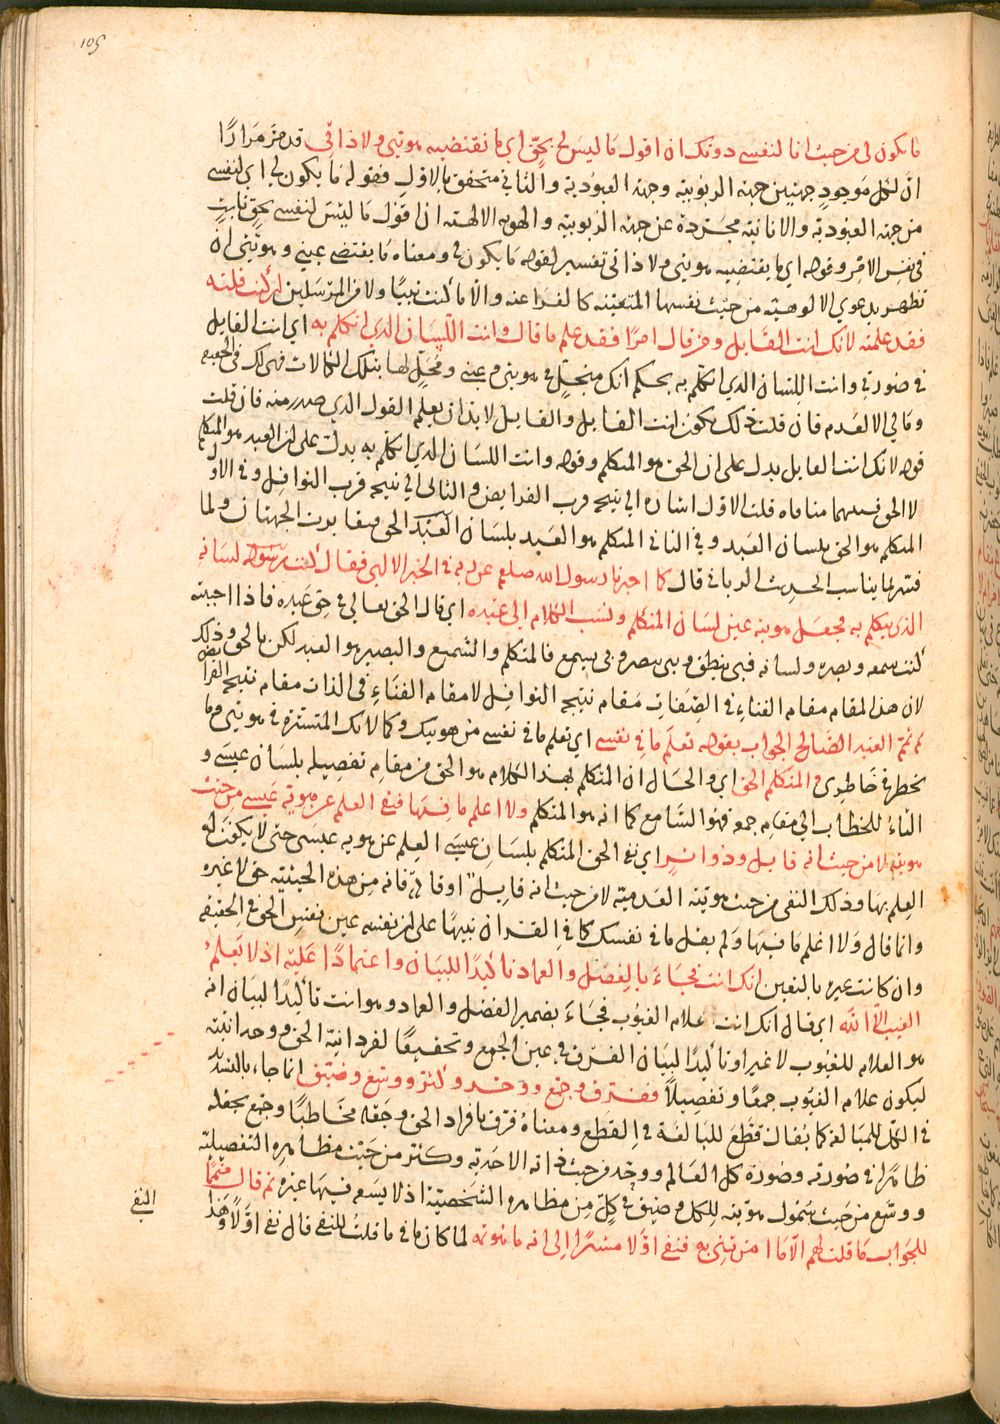 105
ما يكون لى من حيث انا لنفسى دونك ان اقول ما ليس لى بحق اى ما تقتضيه هويتى ولا ذاتى قد مر مرارا
ان لكل موجود جهتين جهة الربوبية وجهة العبودية والثانى متحقق بالاول فقوله ما يكون لى اى لنفسى
من جهة العبودية والانانية مجردة عن جهة الربوبية والهوية الالهية ان اقول ما ليس لنفسى بحق ثابت
فى نفس الامر وقوله اى ما يقتضيه هويتى ولا ذاتى تفسير لقوله ما يكون لى ومعناه ما يقتضى عينى وهويتى ان
تظهر بدعوى الالوهية من حيث نفسها المتعينة كالفراعنة والا ما كنت نبيا ولا من المرسلين ان كنت قلته
فقد علمته لانك انت القايل ومن قال امرا فقد علم ما قال وانت اللسان الذى اتكلم به اى انت القايل
فى صورتى وانت اللسان الذى اتكلم به بحكم انك متجل فى هويتى وعينى ومحل لها بتلك الكمالات فهى لك فى الحقيقة
وما لى الا العدم فان قلت ذلك يكون انت القايل والقايل لا بد ان يعلم القول الذى صدر منه فان قلت
قوله لانك انت القايل يدل على ان الحق هو المتكلم وقوله وانت اللسان الذى اتكلم به يدل على ان العبد هو المتكلم
لا الحق فبينهما منافاه قلت الاول اشارة الى نتيجة قرب الفرايض والثانى الى نتيجة قرب النوافل وفى الاول
المتكلم هو الحق بلسان العبد وفى الثانى المتكلم هو العبد بلسان الحق فتغايرت الجهتان ولما
فسر بما يناسب الحديث الربانى قال كما اخبرنا رسول الله صلعم عن ربه فى الخبر الالهى فقال كنت لسانه
الذى يتكلم به فجعل هويته عين لسان المتكلم ونسب الكلام الى عبده اى قال الحق تعالى فى حق عبده فاذا احببته
كنت سمعه وبصره ولسانه فبى ينطق وبى يبصر وبى يسمع فالمتكلم والسميع والبصير هو العبد لكن بالحق وذلك
لان هذا المقام مقام الفناء فى الصفات مقام نتيجة النوافل لا مقام الفناء فى الذات مقام نتيجة الفرايض
ثم تمم العبد الصالح الجواب بقوله تعلم ما فى نفسى اى تعلم ما فى نفسى من هويتك وكمالاتك المستترة فى هويتى وما
يخطر فى خاطرى والمتكلم الحق اى والحال ان المتكلم بهذا الكلام هو الحق من مقام تفصيله بلسان عيسى و
التاء للخطاب الى مقام جمعه فهو السامع كما انه هو المتكلم ولا اعلم ما فيها فنفى العلم عن هوية عيسى من حيث
هويته لا من حيث انه قايل وذو اثر اى نفى الحق المتكلم بلسان عيسى العلم عن هوية عيسى حتى لا يكون له
العلم بها وذلك النفى من حيث هويته العدمية لا من حيث انه قايل او قادر فانه من هذه الحيثية حق لا غيره
وانما قال ولا اعلم ما فيها ولم يقل ما فى نفسك كما فى القران تنبيها على ان نفسه عين نفس الحق فى الحقيقة
وان كانت غيره بالتعين انك انت فجاء بالفصل والعماد تاكيدا للبيان واعتمادا عليه اذ لا يعلم
الغيب الا الله اى قال انك انت علام الغيوب فجاء بضمير الفصل والعماد وهو انت تاكيدا لبيان انه
هو العلام للغيوب لا غير او تاكيدا لبيان الفرق فى عين الجمع وتحقيقا لفردانية الحق ووحدانيته
ليكون علام الغيوب جمعا وتفصيلا ففرق وجمع ووحد وكثر ووسع وضيق انما جاء بالتشديد
فى الكل للمبالغة كما يقال قطع للمبالغة فى القطع ومعناه فرق بافراد الحق وجعله مخاطبا وجمع بجعله
ظاهرا فى صورته وصورة كل العالم ووحد من حيث ذاته الاحدية وكثر من حيث مظاهره التفصيلية
ووسع من حيث شمول هويته للكل وضيق فى كل من مظاهره الشخصية اذ لا يسع فيها غيره ثم قال متمما
للجواب ما قلت لهم الا ما امرتنى به فنفى اولا مشيرا الى انه ما هو ثمه لما كان ما فى ما قلت للنفى قال نفى اولا وهذا
النفى